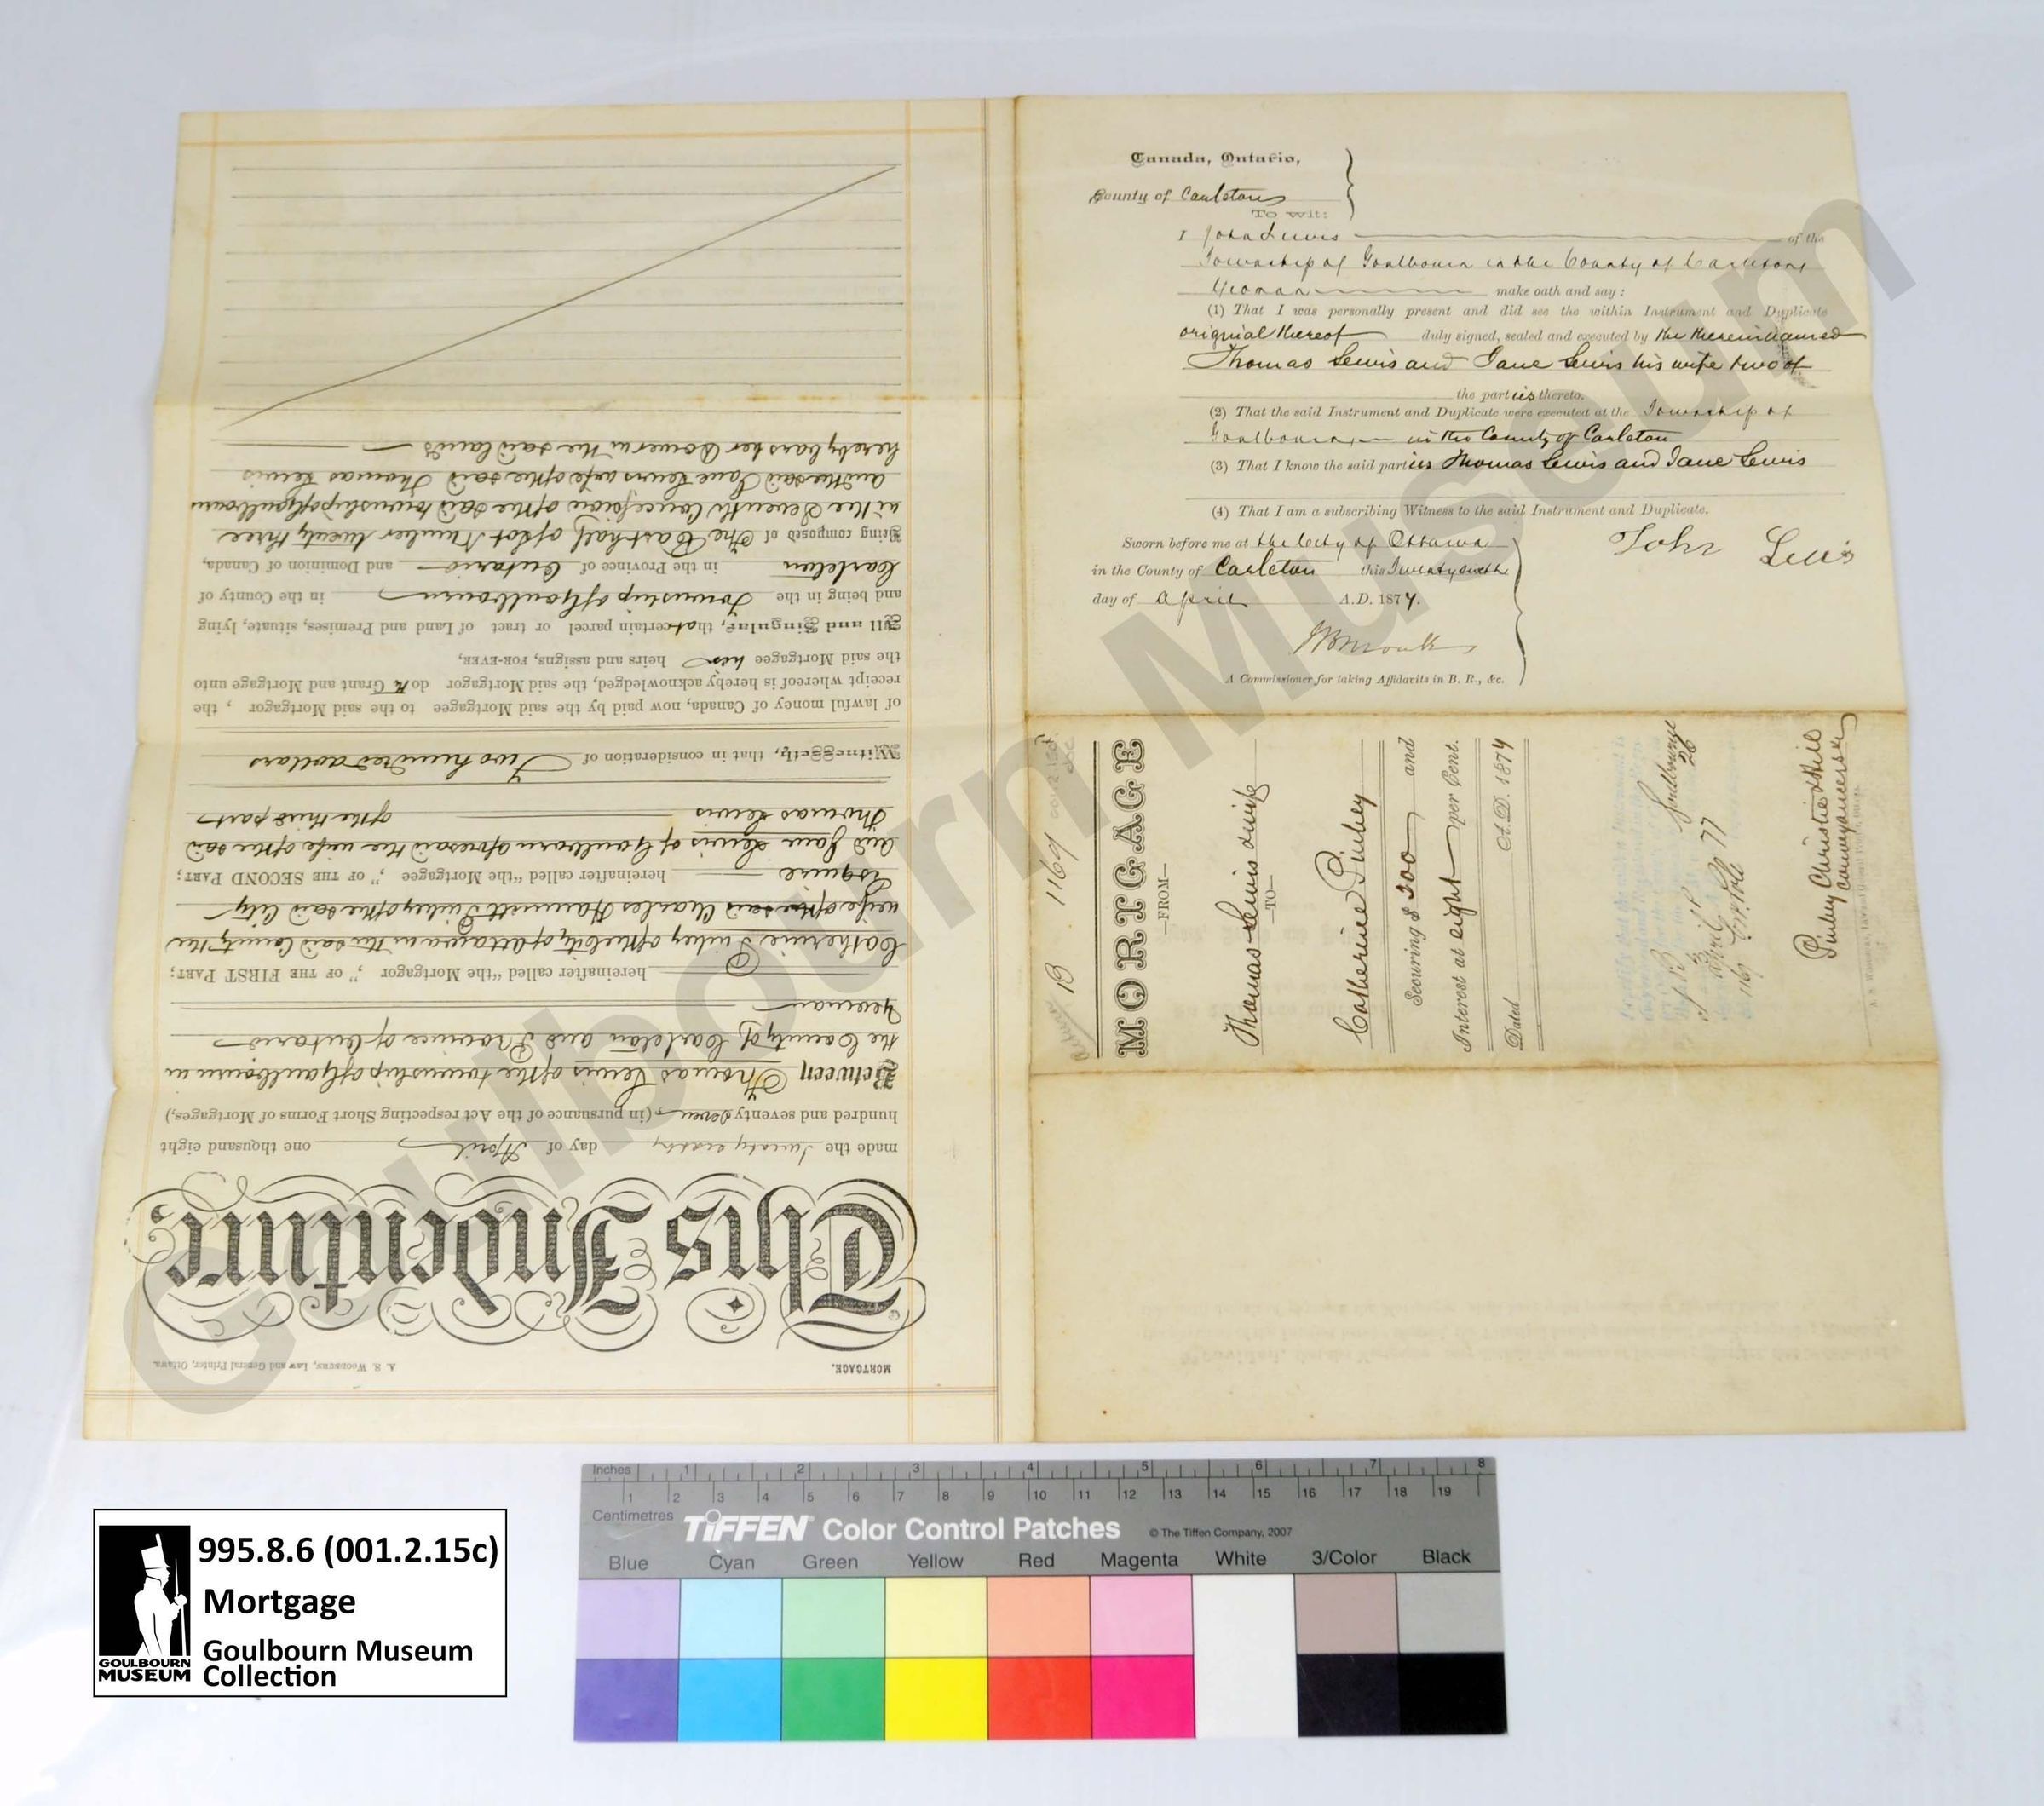 MORTGAGE.
A. S. WOODBURN, Law and General Printer, Ottawa.
This Indenture
made the twenty eighth day of April one thousand eight
hundred and seventy seven (in pursuance of the Act respecting Short Forms of Mortgages,)
Between Thomas Lewis of the township of Goulbourn in
the County of Carleton and Province of Ontario
Yeoman
hereinafter called "the Mortgagor ," OF THE FIRST PART;
Catherine Pinhey of the City of Ottawa in the said County the
wife of Charles Hammett Pinhey of the said City
Esquire hereinafter called "the Mortgagee ," OF THE SECOND PART;
And Jane Lewis of Goulbourn aforesaid the wife of the said
Thomas Lewis of the third part
Witnesseth, that in consideration of Two hundred dollars
of lawful money of Canada, now paid by the said Mortgagee to the said Mortgagor , the
receipt whereof is hereby acknowledged, the said Mortgagor doth Grant and Mortgage unto
the said Mortgagee her heirs and assigns, FOR-EVER,
All and Singular, that certain parcel or tract of Land and Premises, situate, lying
and being in the Township of Goulbourn in the County of
Carleton in the Province of Ontario and Dominion of Canada,
Being composed of The East half of Lot Number twenty three
in the Seventh Concession of the said township of Goulbourn
and the said Jane Lewis wife of the said Thomas Lewis
hereby bars her Dower in the said lands
Canada, Ontario,
County of Carleton
To wit:
I John Lewis of the
Township of Goulbourn in the County of Carleton
Yeoman make oath and say:
(1) That I was personally present and did see the within Instrument and Duplicate
original thereof duly signed, sealed and executed by the therein named
Thomas Lewis and Jane Lewis his wife two of
the parties thereto.
(2) That the said Instrument and Duplicate were executed at the Township of
Goulbourn in the County of Carleton
(3) That I know the said parties Thomas Lewis and Jane Lewis
(4) That I am a subscribing Witness to the said Instrument and Duplicate.
Sworn before me at the City of Ottawa
in the County of Carleton this Twenty
day of April A.D. 1877.
John Lewis
A Commissioner for taking Affidavits in B. R., &c.
B 1169
MORTGAGE
—FROM—
Thomas Lewis & wife
—TO—
Catherine Pinhey
Securing $ 200 and
Interest at eight per Cent.
Dated A.D. 187
Goulbourn
April 77
Pinhey Christie & Hill
Conveyancers
Goulbourn Museum
Inches 1 2 3 4 5 6 7 8
1 2 3 4 5 6 7 8 9 10 11 12 13 14 15 16 17 18 19
Centimetres
TIFFEN Color Control Patches © The Tiffen Company, 2007
Blue Cyan Green Yellow Red Magenta White 3/Color Black
995.8.6 (001.2.15c)
Mortgage
Goulbourn Museum
Collection
GOULBOURN
MUSEUM